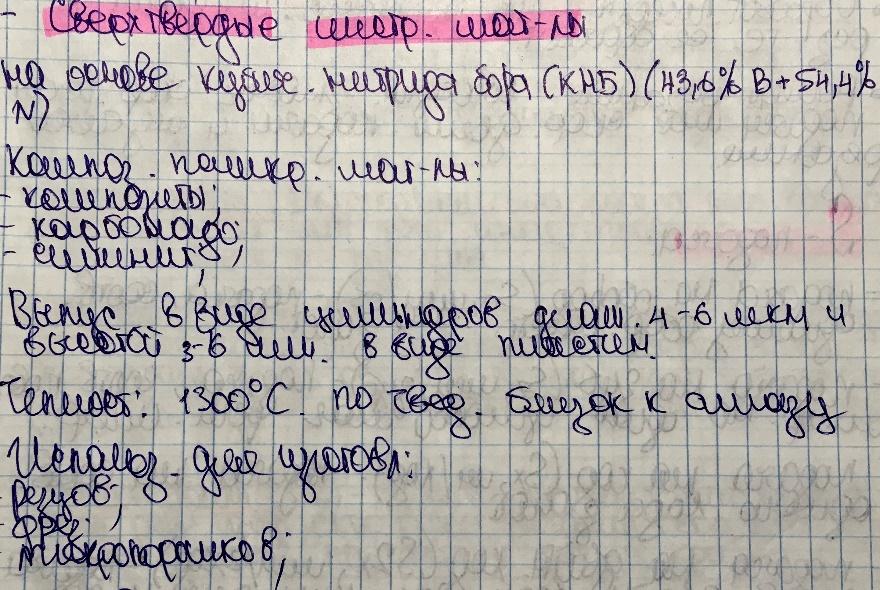 - Сверхтвердые инстр. мат-лы
на основе кубич. нитрида бора (КНБ) (43,6% B + 54,4%
N)
Композ. поликр. мат-лы:
- композиты;
- карбонадо;
- эльбит;
Выпус. в виде цилиндров диам. 4-6 мкм и
высотой 3-6 мм. в виде пластин.
Теплост: 1300°С. по твед. близок к алмазу
Использ. для изготовл:
- резцов;
- фрез;
- микропорошков;